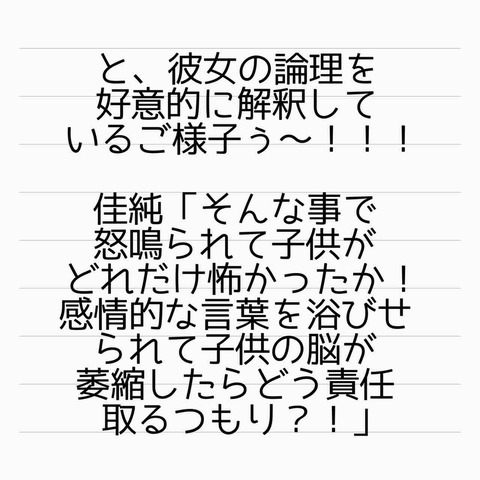 と、彼女の論理を
好意的に解釈して
いるご様子ぅ～！！！
佳純「そんな事で
怒鳴られて子供が
どれだけ怖かったか！
感情的な言葉を浴びせ
られて子供の脳が
萎縮したらどう責任
取るつもり？！」